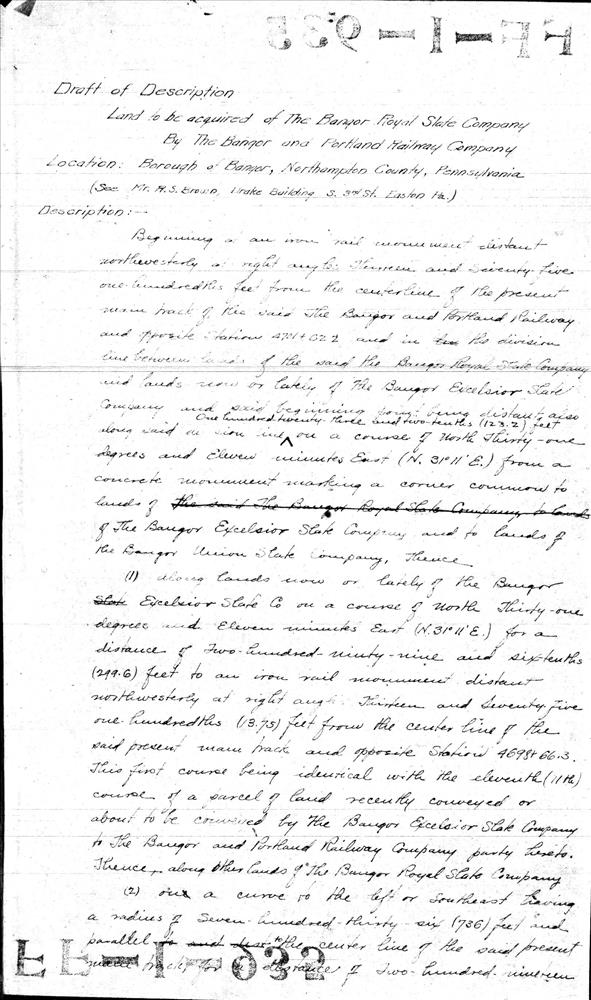 EE-1-935
Draft of Description
Land to be acquired of The Bangor Royal Slate Company
By The Bangor and Portland Railway Company
Location: Borough of Bangor, Northampton County, Pennsylvania
(See Mr. H.S. Brown, Drake Building, S. 3rd St. Easton Pa.)
Description:-
Beginning at an iron rail monument distant
northwesterly at right angles Thirteen and Seventy-five
one-hundredths feet from the centerline of the present
main track of the said The Bangor and Portland Railway
and opposite Station and in the division
line between lands of the said the Bangor Royal Slate Company
and lands now or lately of The Bangor Excelsior Slate
Company and said beginning point being distant also
One hundred twenty-three and two-tenths (123.2) feet
along said division line on a course of North Thirty-one
degrees and Eleven minutes East (N. 31° 11' E.) from a
concrete monument marking a corner common to
lands of the said The Bangor Royal Slate Company, to lands
of The Bangor Excelsior Slate Company and to lands of
the Bangor Union Slate Company, Thence
(1) along lands now or lately of the Bangor
Slate Excelsior Slate Co on a course of North Thirty-one
degrees and Eleven minutes East (N. 31° 11' E.) for a
distance of Two-hundred-ninety-nine and six-tenths
(299.6) feet to an iron rail monument distant
northwesterly at right angl Thirteen and Seventy five
one-hundredths (13.75) feet from the center line of the
said present main track and opposite Station 4698+66.3.
This first course being identical with the eleventh (11th)
course of a parcel of land recently conveyed or
about to be conveyed by The Bangor Excelsior Slate Company
to The Bangor and Portland Railway Company party hereto.
Thence, along other lands of The Bangor Royal Slate Company
(2) on a curve to the left or Southeast having
a radius of Seven-hundred-thirty-six (736) feet and
parallel to and to the center line of the said present
main track for a distance of Two-hundred-nineteen
EE-1-932